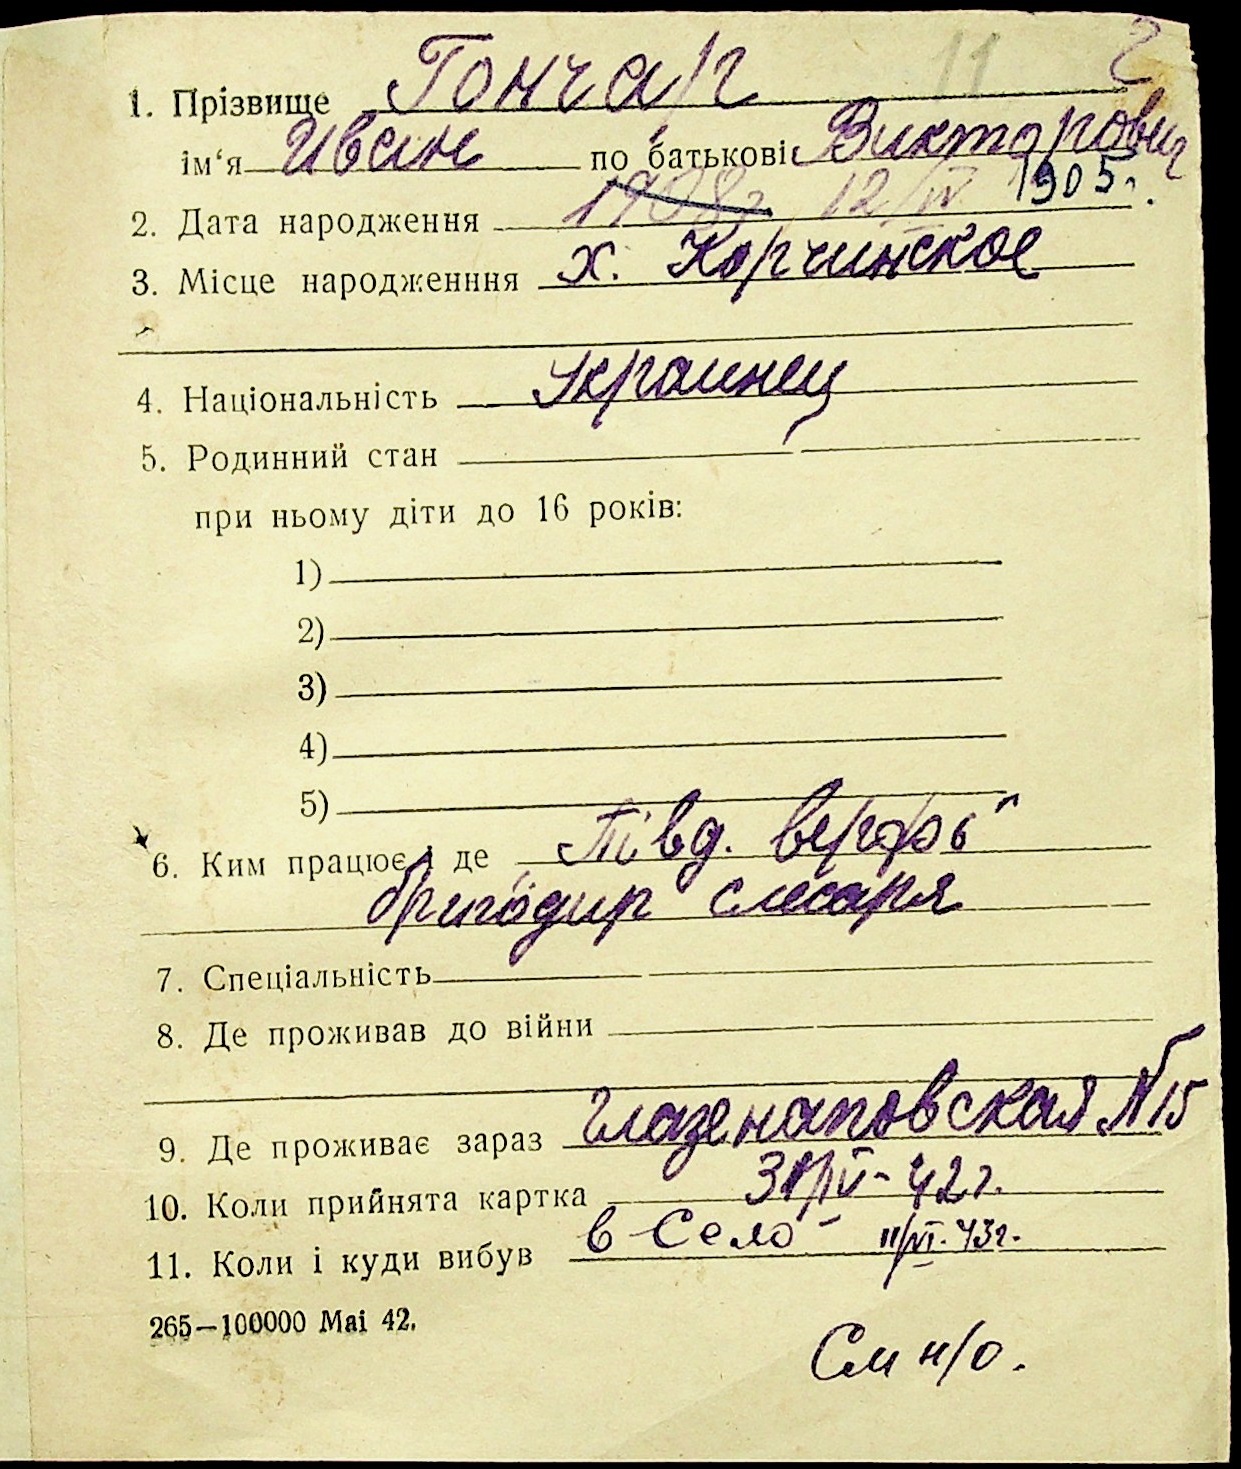 11 2
1. Прізвище Гончар
ім‘я Иван по батькові Викторович
2. Дата народження 1908г 12/IV 1905г.
3. Місце народженння х. Корчинское
4. Національність Украинец
5. Родинний стан
при ньому діти до 16 років:
1)
2)
3)
4)
5)
6. Ким працює і де „Півд. верфь“
бригадир слесаря
7. Спеціальність
8. Де проживав до війни
9. Де проживає зараз Глазенаповская №15
10. Коли прийнята картка 31/V-42г.
11. Коли і куди вибув в село - 11/VI-43г.
265—100000 Mai 42.
См н/о.